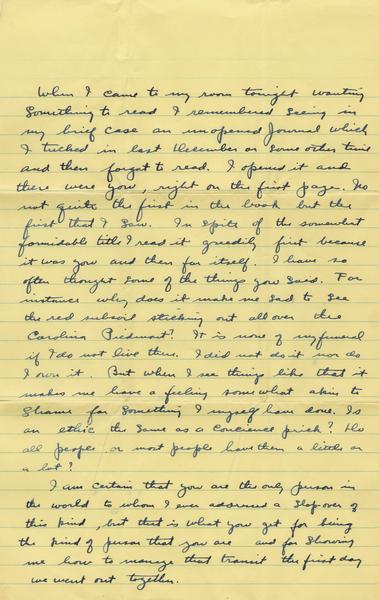 When I came to my room tonight wanting
something to read I remembered seeing in
my brief case an unopened Journal which
I tucked in last December or some other time
and then forgot to read. I opened it and
there were you, right on the first page. No
not quite the first in the book but the
first that I saw. In spite of the somewhat
formidable title I read it greedily first because
it was you and then for itself. I have so
often thought some of the things you said. For
instance why does it make me sad to see
the red subsoil sticking out all over the
Carolina Piedmont? It is none of my funeral
if I do not live there. I did not do it nor do
I own it. But when I see things like that it
makes me have a feeling somewhat akin to
Shame for something I myself have done. Is
an ethic the same as a Concience prick? Do
all people or most people have them a little or
a lot?
I am certain that you are the only person in
the world to whom I ever addressed a slop over of
this kind, but that is what you get for being
the kind of person that you are and for showing
me how to manage that transit the first day
we went out together.